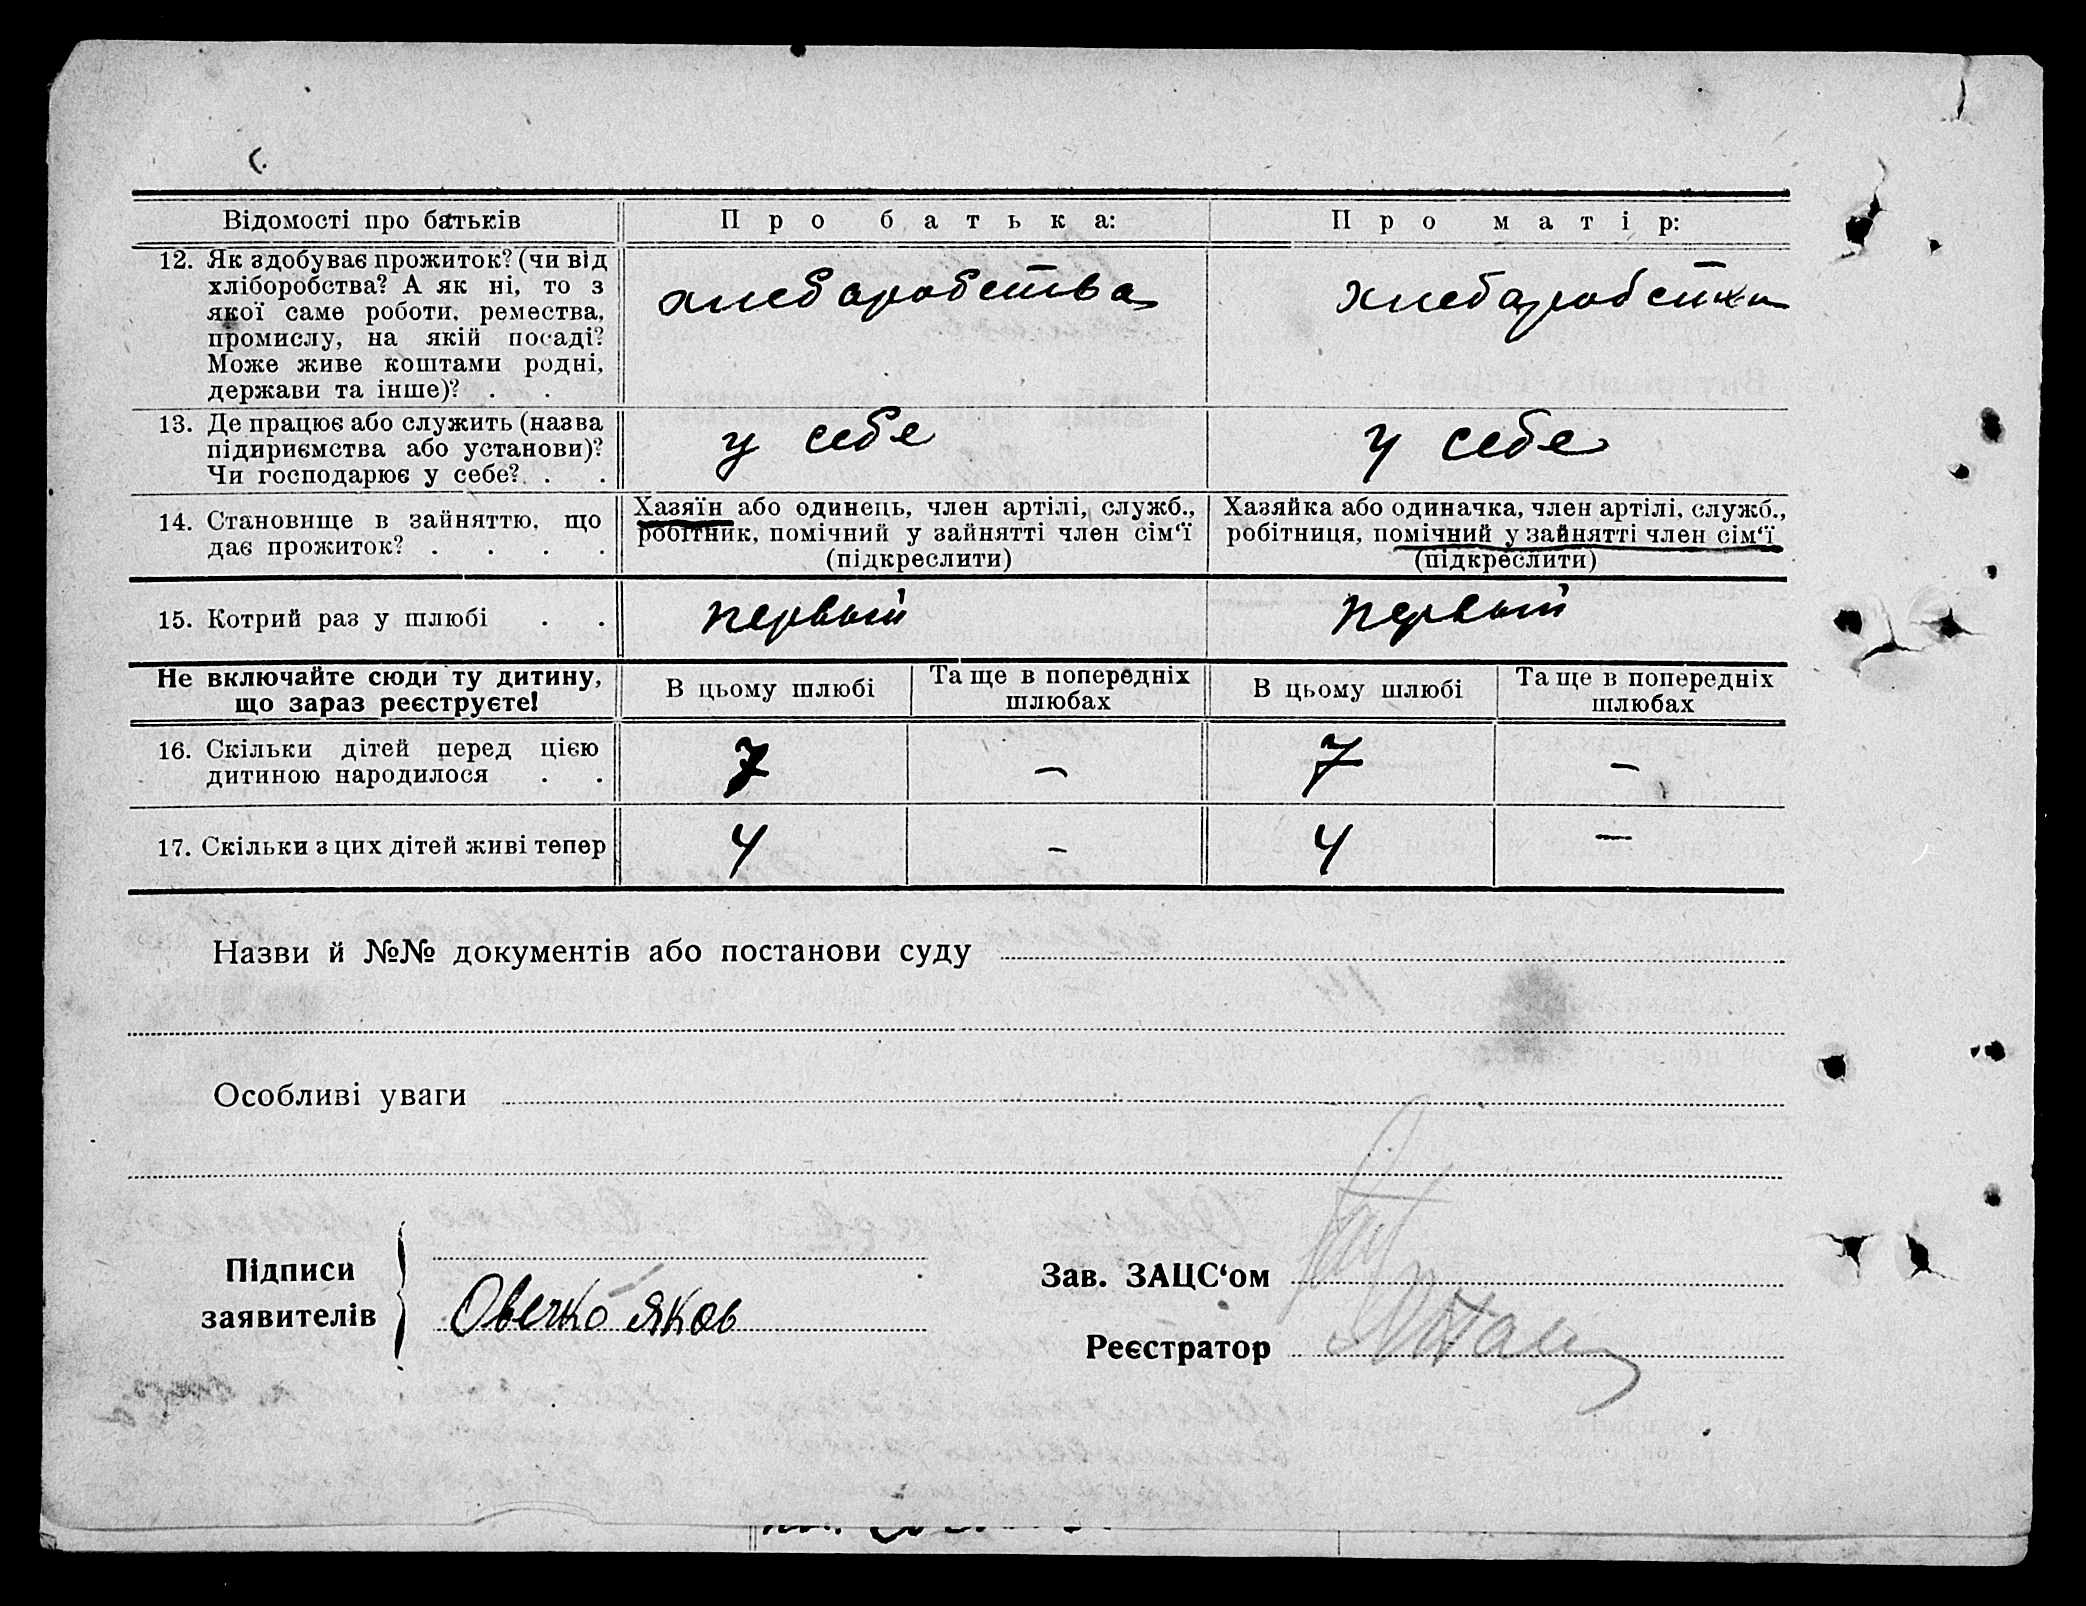 Відомості про батьків
Про батька:
Про матір:
12. Як здобуває прожиток? (чи від
хліборобства? А як ні, то з
якої саме роботи, ремества,
промислу, на якій посаді?
Може живе коштами родні,
держави та інше)? . .
хлебаробства
хлебаробст
13. Де працює або служить (назва
підприємства або установи)?
Чи господарює у себе? . .
у себе
у себе
14. Становище в зайняттю, що
дає прожиток? . . . .
Хазяїн або одинець, член артілі, служб.,
робітник, помічний у зайнятті член сім'ї
(підкреслити)
Хазяйка або одиначка, член артілі, служб.,
робітниця, помічний у зайнятті член сім'ї
(підкреслити)
15. Котрий раз у шлюбі . .
первый
первый
Не включайте сюди ту дитину,
що зараз реєструєте!
В цьому шлюбі
Та ще в попередніх
шлюбах
В цьому шлюбі
Та ще в попередніх
шлюбах
16. Скільки дітей перед цією
дитиною народилося . .
7
—
7
—
17. Скільки з цих дітей живі тепер
4
—
4
—
Назви й №№ документів або постанови суду
Особливі уваги
Підписи
заявителів
Овечко Яков
Зав. ЗАЦС'ом
Реєстратор